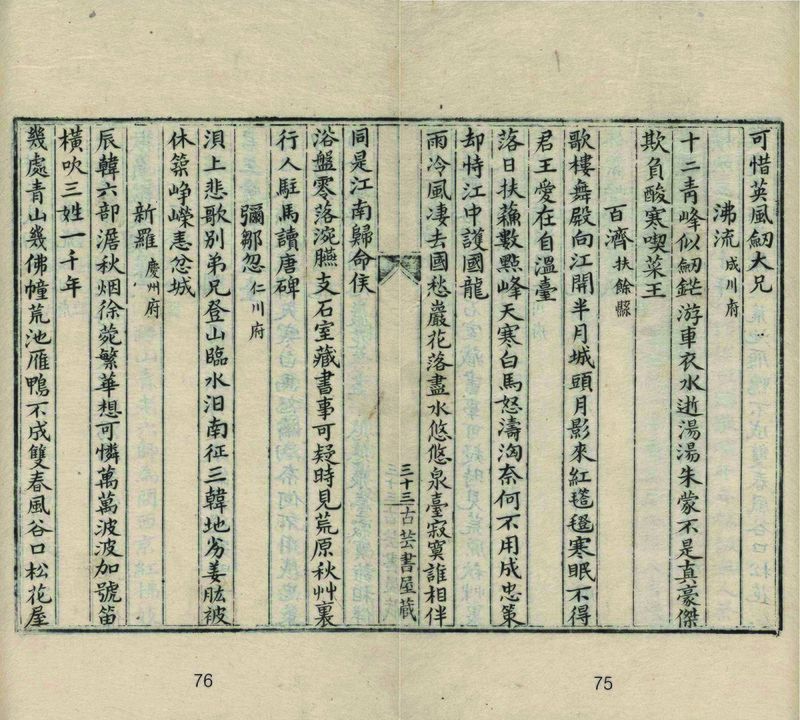 可惜英風劒大兄
沸流 成川府
十二靑峰似劒鋩游車衣水逝湯湯朱蒙不是真豪傑
欺負酸寒喫菜王
百濟 扶餘縣
歌樓舞殿向江開半月城頭月影來紅毾㲪寒眠不得
君王愛在自溫臺
落日扶蘓數點峰天寒白馬怒濤洶奈何不用成忠策
却恃江中護國龍
雨冷風凄去國愁巖花落盡水悠悠泉臺寂寞誰相伴
三十三古芸書屋藏
同是江南歸命侯
浴盤零落涴臙支石室藏書事可疑時見荒原秋艸裏
行人駐馬讀唐碑
彌鄒忽 仁川府
浿上悲歌別弟兄登山臨水汨南征三韓地劣姜肱被
休築崢嶸恚忿城
新羅 慶州府
辰韓六部澹秋烟徐菀繁華想可憐萬萬波波加號笛
橫吹三姓一千年
幾處青山幾佛幢荒池雁鴨不成雙春風谷口松花屋
75
76